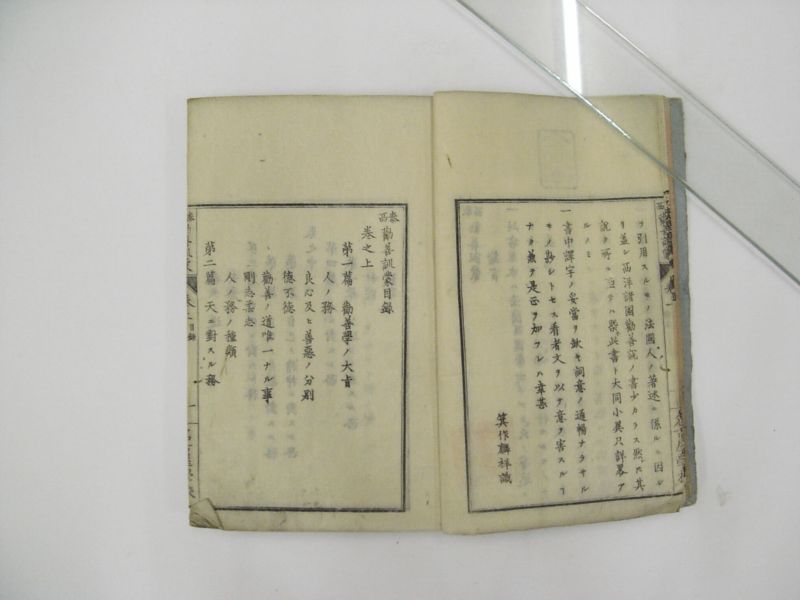 ヲ引用スルモノ法國人ノ著述ニ係ルニ因レ
リ蓋シ西洋諸國勸善説ノ書少カラス然𪜈其
説ク所ニ至テハ器此書ト大同小異只詳畧ア
ルノミ
一書中譯字ノ妥當ヲ欽キ詞意ノ通暢ナラサル
モノ抄シトセス看者文ヲ以テ意ヲ害スルヿ
ナク義ヲ是正ヲ加フレハ幸甚
箕作麟祥識
泰西勸善訓蒙目録
卷之上
第一篇 勸善學ノ大旨
人ノ務
良心及ヒ善惡ノ分別
德不德
勸善ノ道唯一ナル事
剛志柔志
人ノ務ノ種類
第二篇 天ニ對スル務